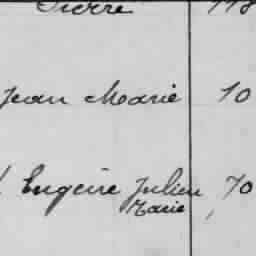 Pierre 118
Jean Marie 10
Eugène Julien 70
Marie